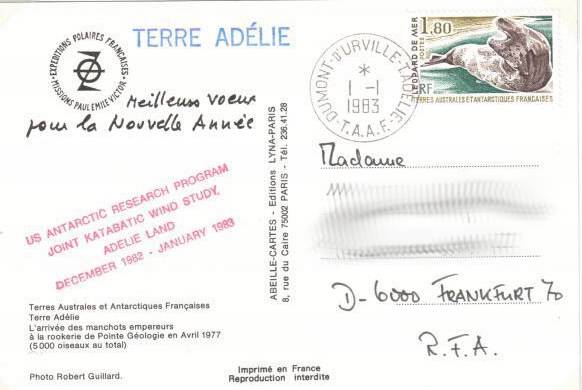 TERRE ADÉLIE
EXPEDITIONS POLAIRES FRANÇAISES
MISSIONS PAUL EMILE VICTOR
Meilleurs voeux
pour la Nouvelle Année
US ANTARCTIC RESEARCH PROGRAM
JOINT KATABATIC WIND STUDY,
ADELIE LAND
DECEMBER 1982 - JANUARY 1983
Terres Australes et Antarctiques Françaises
Terre Adélie
L'arrivée des manchots empereurs
à la rookerie de Pointe Géologie en Avril 1977
(5 000 oiseaux au total)
Photo Robert Guillard.
Imprimé en France
Reproduction interdite
ABEILLE-CARTES - Editions LYNA-PARIS
8, rue du Caire 75002 PARIS - Tél. 236.41.28
DUMONT-D'URVILLE-T.ADELIE
*
1 -1
1983
T.A.A.F.
1.80
POSTES
LÉOPARD DE MER
RF
TERRES AUSTRALES ET ANTARCTIQUES FRANÇAISES
Madame
D-6000 FRANKFURT 70
R.F.A.